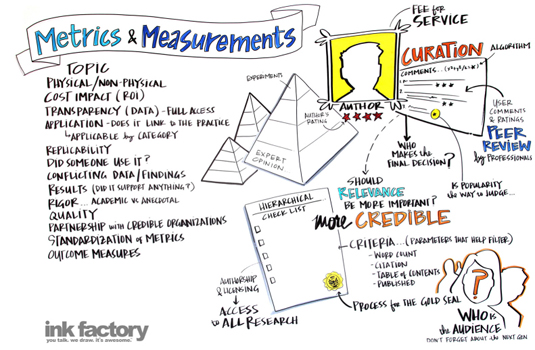 Metrics & Measurements
TOPIC
PHYSICAL/NON-PHYSICAL
COST IMPACT (ROI)
TRANSPARENCY (DATA) - FULL ACCESS
APPLICATION - DOES IT LINK TO THE PRACTICE
APPLICABLE BY CATEGORY
REPLICABILITY
DID SOMEONE USE IT?
CONFLICTING DATA/FINDINGS
RESULTS (DID IT SUPPORT ANYTHING?)
RIGOR... ACADEMIC vs ANECDOTAL
QUALITY
PARTNERSHIP WITH CREDIBLE ORGANIZATIONS
STANDARDIZATION OF METRICS
OUTCOME MEASURES
EXPERIMENTS
AUTHOR'S RATING
EXPERT OPINION
AUTHOR
FEE FOR SERVICE
CURATION
ALGORITHM
COMMENTS...
1.
2.
3.
USER COMMENTS & RATINGS
PEER REVIEW
by PROFESSIONALS
WHO MAKES THE FINAL DECISION?
IS POPULARITY
THE WAY TO JUDGE...
SHOULD
RELEVANCE
BE MORE IMPORTANT?
more CREDIBLE
HIERARCHICAL
CHECK LIST
CRITERIA... (PARAMETERS THAT HELP FILTER)
- WORD COUNT
- CITATION
- TABLE OF CONTENTS
- PUBLISHED
PROCESS for THE GOLD SEAL
AUTHORSHIP & LICENSING
ACCESS to ALL RESEARCH
?
WHO is the AUDIENCE
DON'T FORGET ABOUT THE NEXT GEN
ink factory
you talk. we draw. it's awesome.